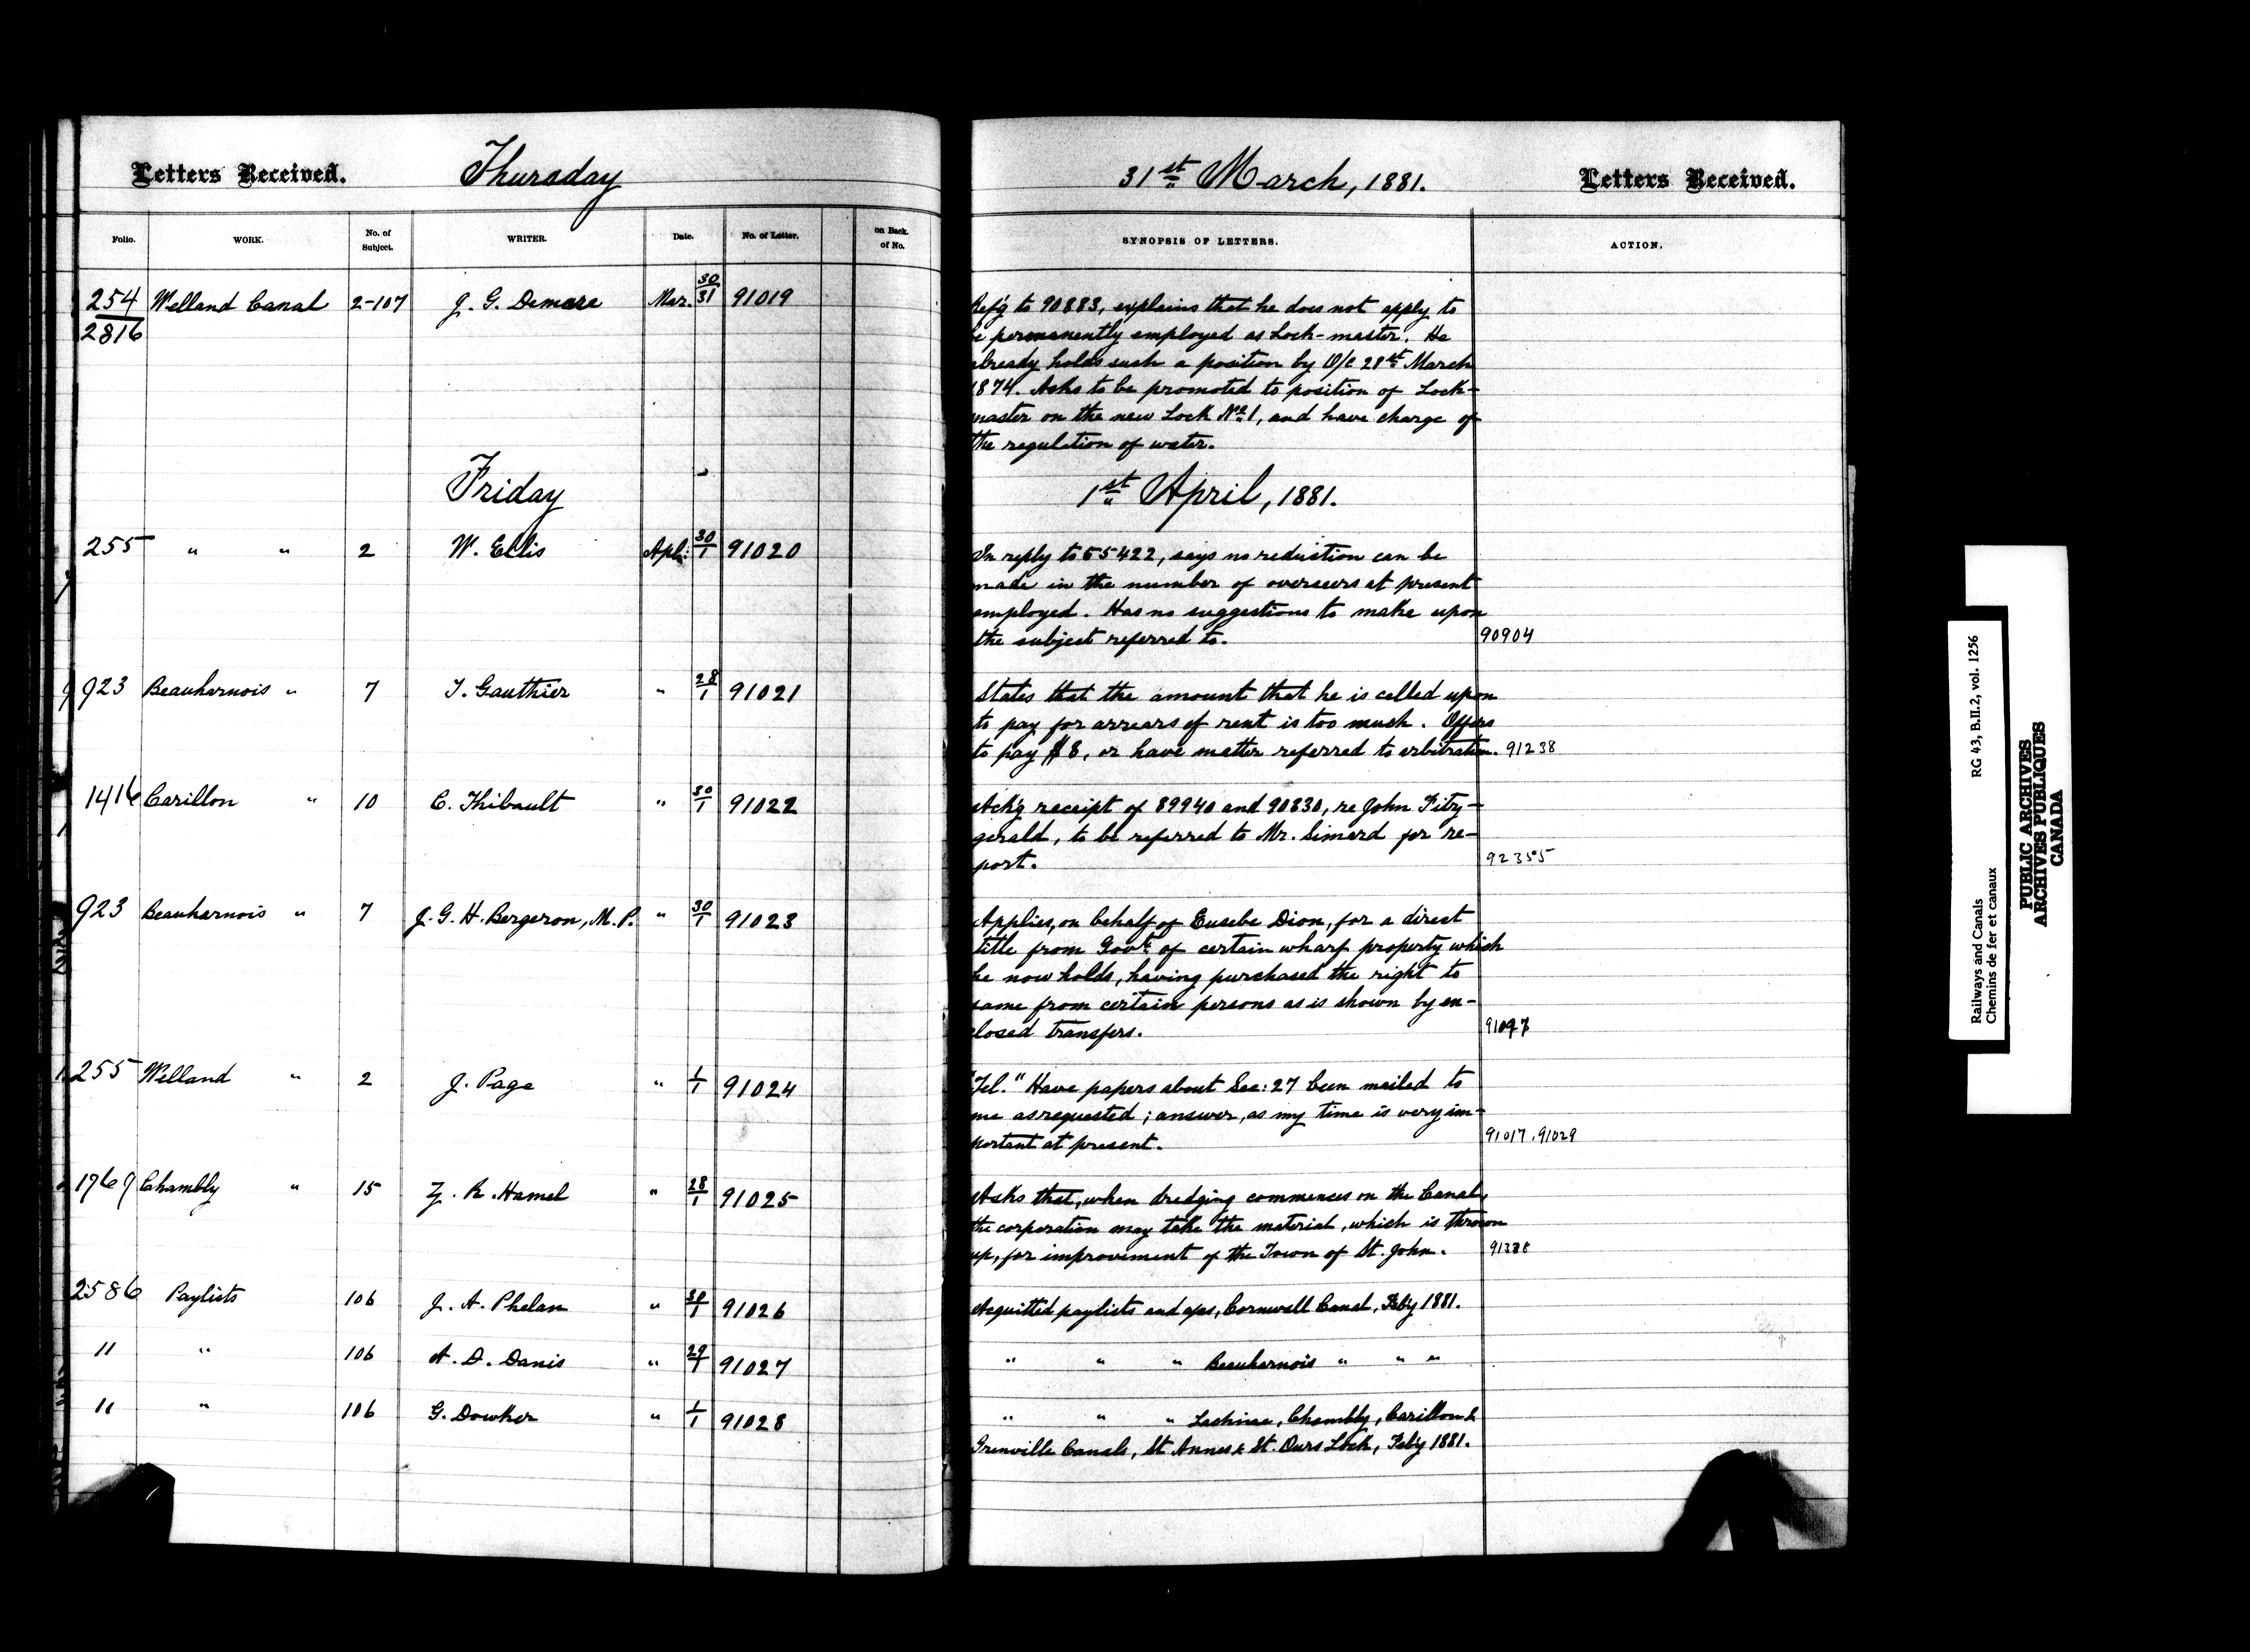 Letters Received. Thursday 31st March, 1881. Letters Received.
Folio. WORK. No. of Subject. WRITER. Date. No. of Letter. on Back of No. SYNOPSIS OF LETTERS. ACTION.
254 Welland Canal 2-107 J. G. Demare Mar. 30/31 91019
2816
Ref'g to 90883, explains that he does not apply to
be permanently employed as Lock-master. He
already holds such a position by O/C 21st March
1874. Asks to be promoted to position of Lock-
master on the new Lock No. 1, and have charge of
the regulation of water.
Friday 1st April, 1881.
255 " " 2 W. Ellis Apl: 30/1 91020
In reply to 55422, says no reduction can be
made in the number of overseers at present
employed. Has no suggestions to make upon
the subject referred to. 90904
923 Beauharnois " 7 T. Gauthier " 28/1 91021
States that the amount that he is called upon
to pay for arrears of rent is too much. Offers
to pay $8, or have matter referred to arbitration. 91238
1416 Carillon " 10 C. Thibault " 30/1 91022
Ack'g receipt of 89940 and 90830, re John Fitz-
gerald, to be referred to Mr. Simard for re-
port. 92355
923 Beauharnois " 7 J. G. H. Bergeron, M. P. " 30/1 91023
Applies, on behalf of Eusebe Dion, for a direct
title from Govt. of certain wharf property which
he now holds, having purchased the right to
same from certain persons as is shown by en-
closed transfers.
255 Welland " 2 J. Page " 1/1 91024
"Tel." Have papers about Sec: 27 been mailed to
me as requested; answer, as my time is very im-
portant at present. 91017, 91029
1769 Chambly " 15 Z. R. Hamel " 28/1 91025
Asks that, when dredging commences on the Canal,
the corporation may take the material, which is thrown
up, for improvement of the Town of St. John.
2586 Paylists 106 J. A. Phelan " 30/1 91026
Acquitted paylists and a/cs, Cornwall Canal, Feb'y 1881.
" " 106 A. D. Danis " 29/1 91027
" " " Beauharnois " " "
" " 106 G. Dowker " 1/1 91028
" " " Lachine, Chambly, Carillon &
Grenville Canals, St Annes & St. Ours Lock, Feb'y 1881.
Railways and Canals RG 43, B.II.2, vol. 1256
Chemins de fer et canaux
PUBLIC ARCHIVES
ARCHIVES PUBLIQUES
CANADA